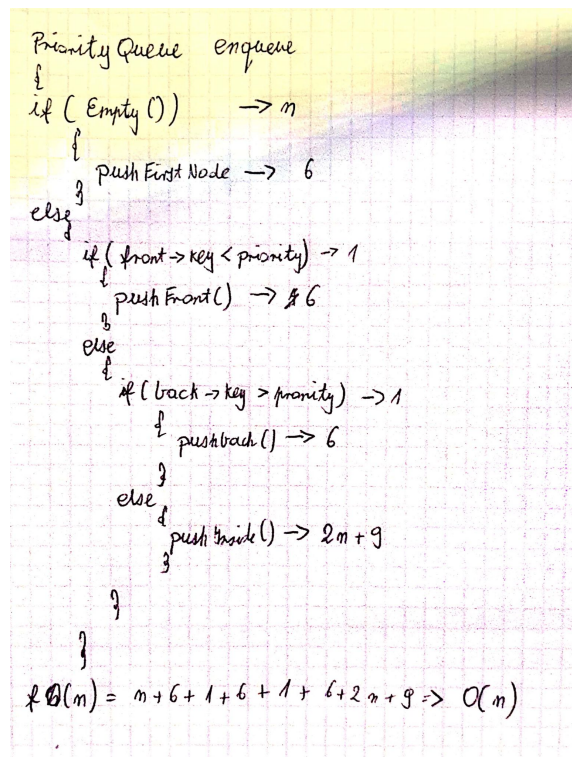 Priority Queue enqueue
{
if ( Empty ()) -> n
{
push First Node -> 6
}
else {
if ( front -> key < priority) -> 1
{
push Front() -> 6
}
else
{
if ( back -> key > prority) -> 1
{
pushback() -> 6
}
else
{
push Inside() -> 2n + 9
}
}
}
f (n) = n + 6 + 1 + 6 + 1 + 6 + 2n + 9 => O(n)